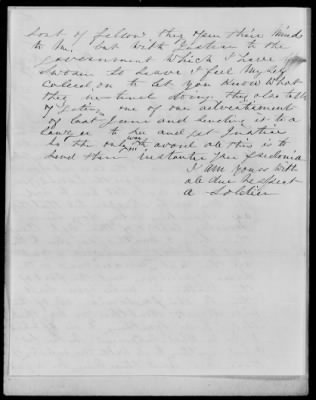 sort of fellow they open their minds
to me. but with Justice to the
government which I have
Sworn to Serve I feel my Self
Called on to let you Know What
they intend doing they also talk
of getting one of our advertisement
of last June and sending it to a
lawyer to see and get Justice
So the only way to avoid all this is to
Send them instanter
I am yours with
all due Respect
a Soldier